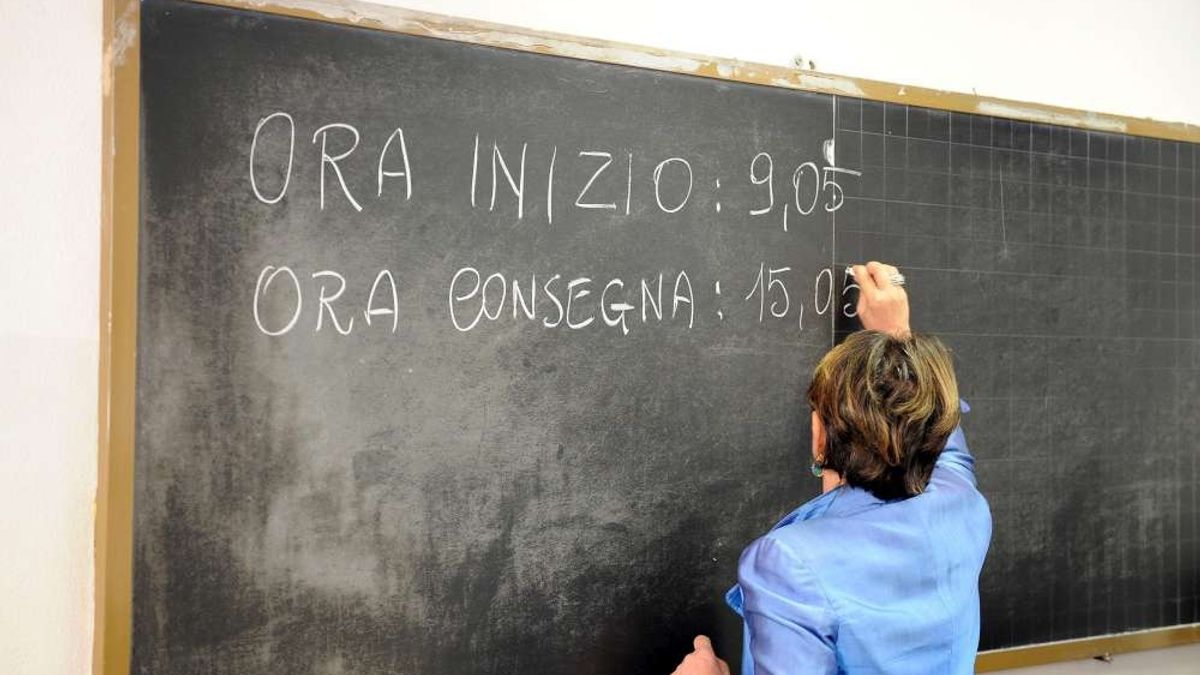 ORA INIZIO: 9,05
ORA CONSEGNA: 15,05